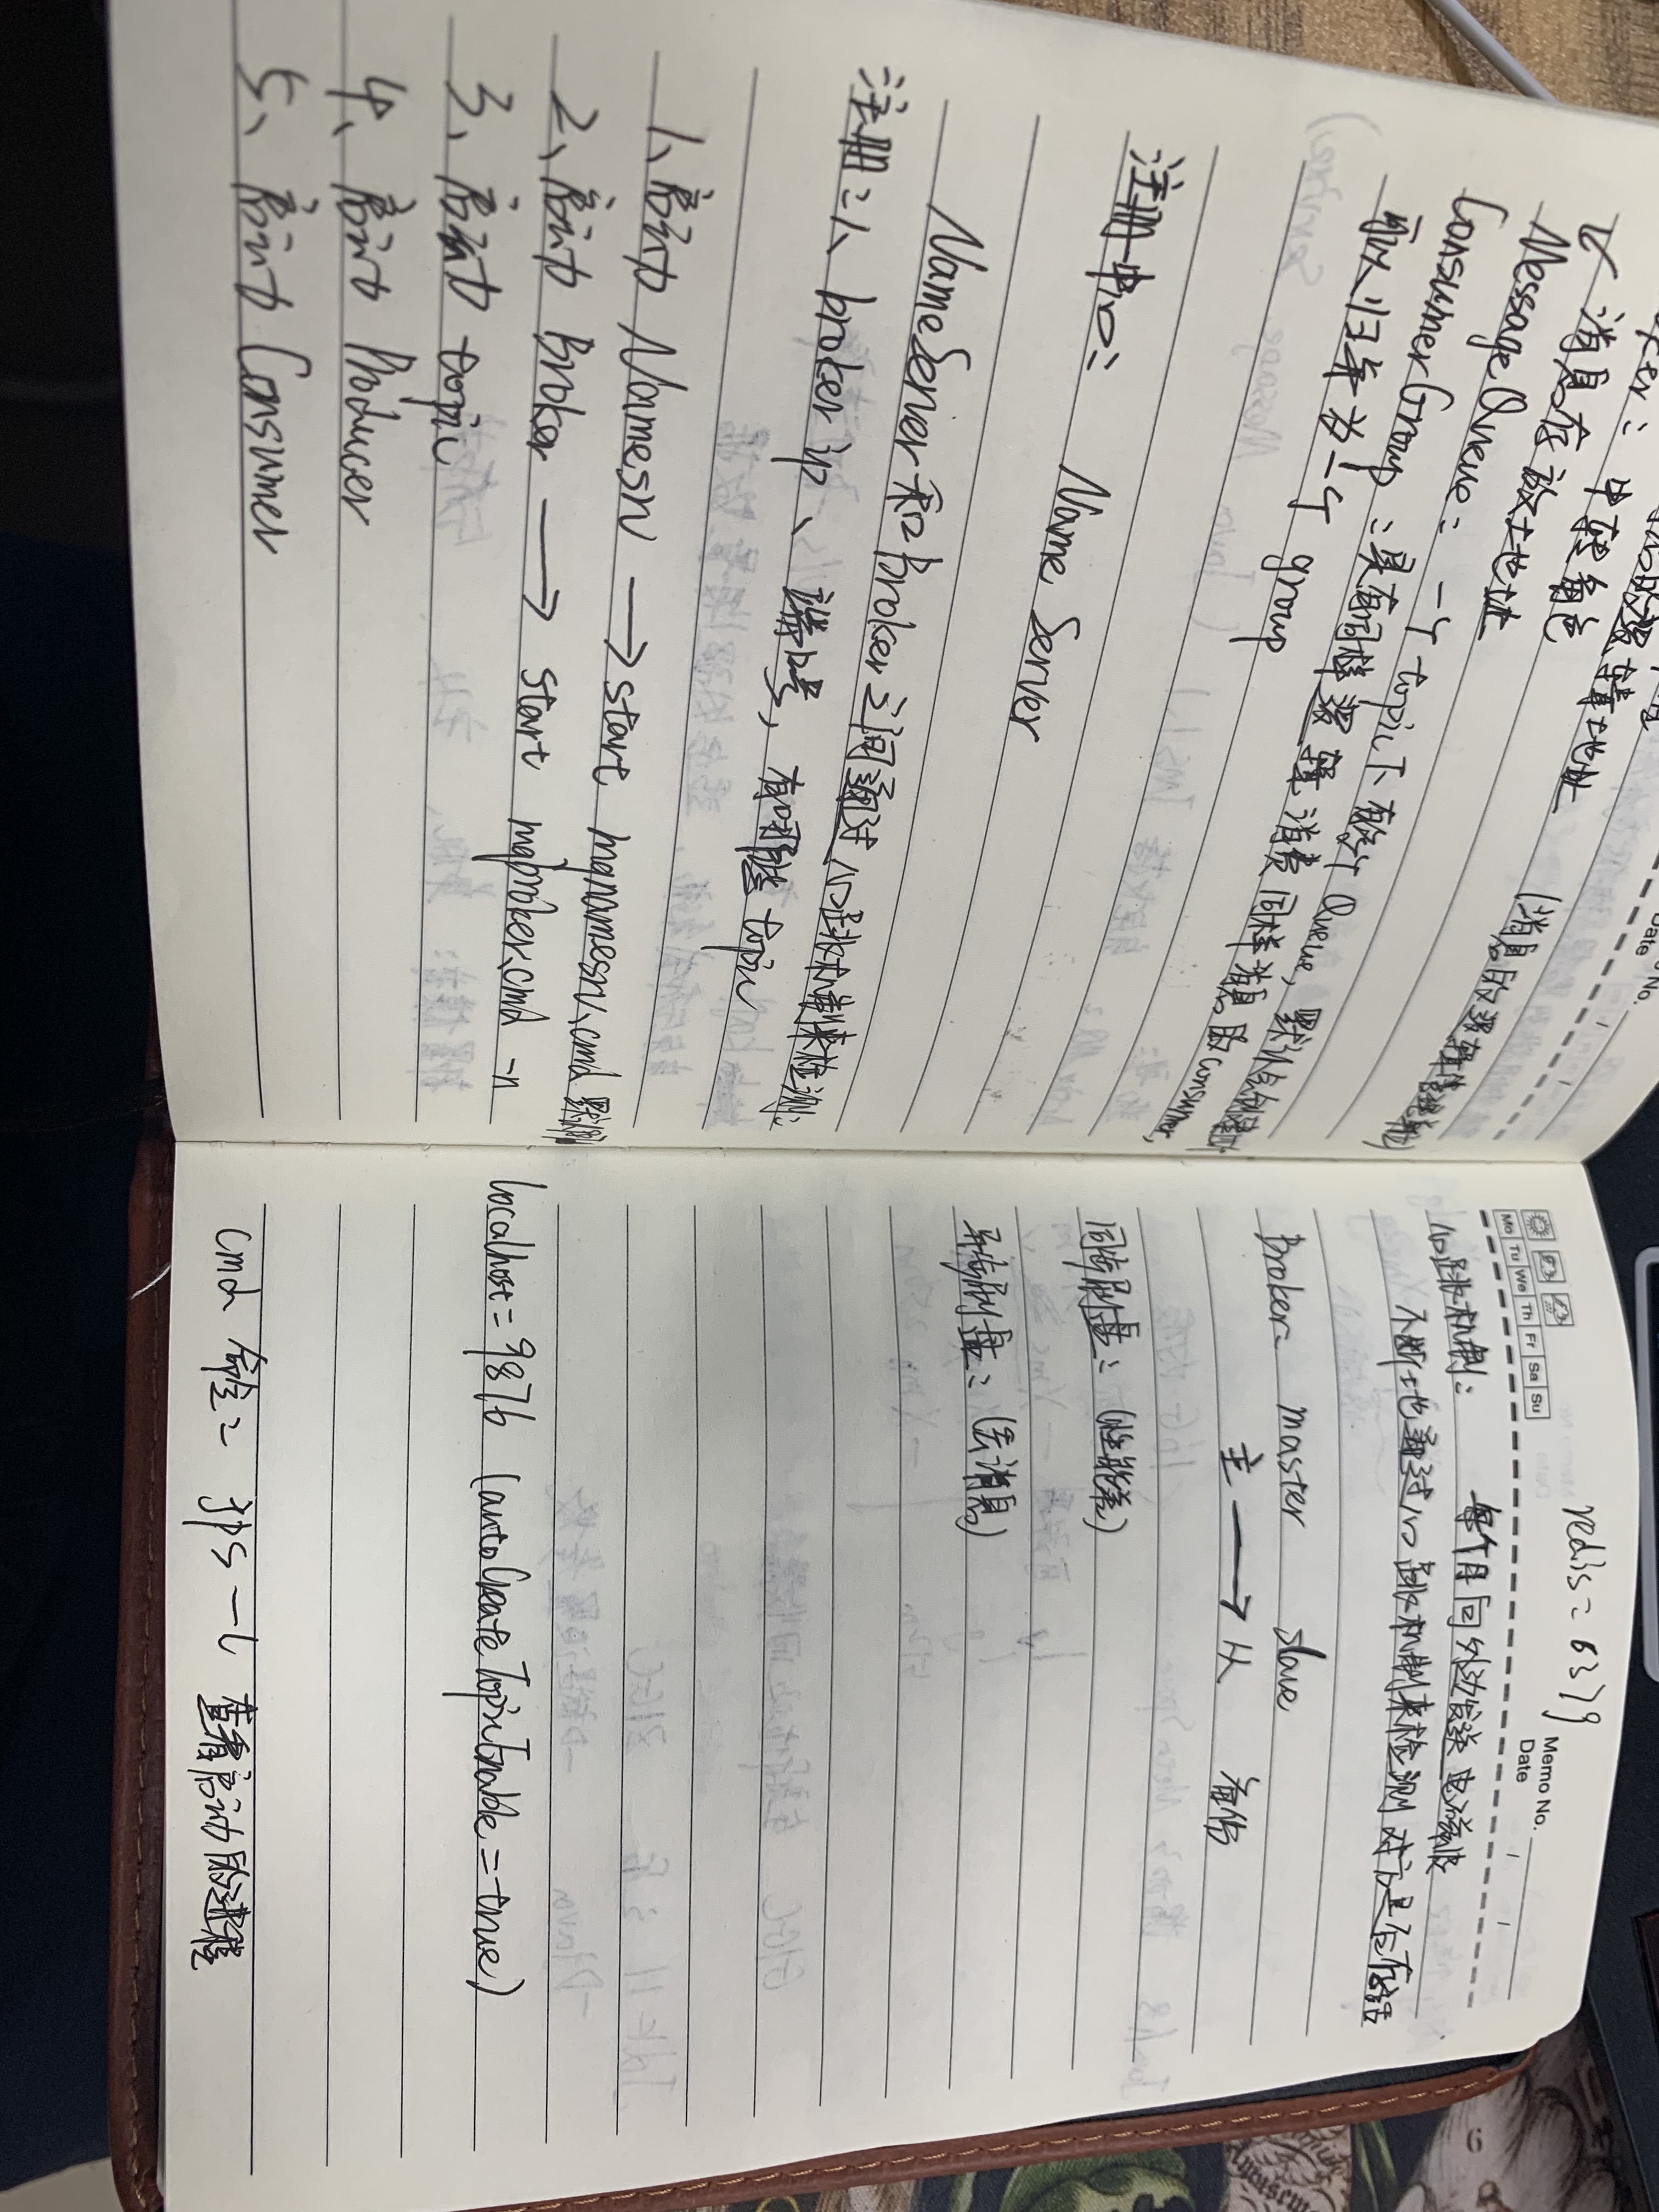 Date
No.
的逻辑地址
(消息的逻辑管理单位)
oker: 中转角色
消息存放土地址
MessageQueue: 一个topic下有多个Queue, 默认会创建四个
ConsumerGroup: 具有同样逻辑消费同样消息的consumer,
可以归第为一个 group
注册中心: Name Server
NameServer和Broker之间通过心跳机制来检测:
注册:1、broker ip、端口号, 有哪些topic
1、启动 Namesrv → start mqnamesrv.cmd
2、启动 Broker → start mqbroker.cmd -n
3、启动 topic
4、启动 Producer
5、启动 Consumer
redis: 6379
Memo No.
Mo Tu We Th Fr Sa Su
Date / /
心跳机制: 每个月向外边发送电磁波
不断地通过心跳机制来检测对方是否存活
Broker: master slave
主 → 从 备份
同步刷盘: (性能差)
异步刷盘: (丢消息)
localhost:9876 (autoCreateTopicEnable=true)
cmd 命令: jps -l 查看启动的进程